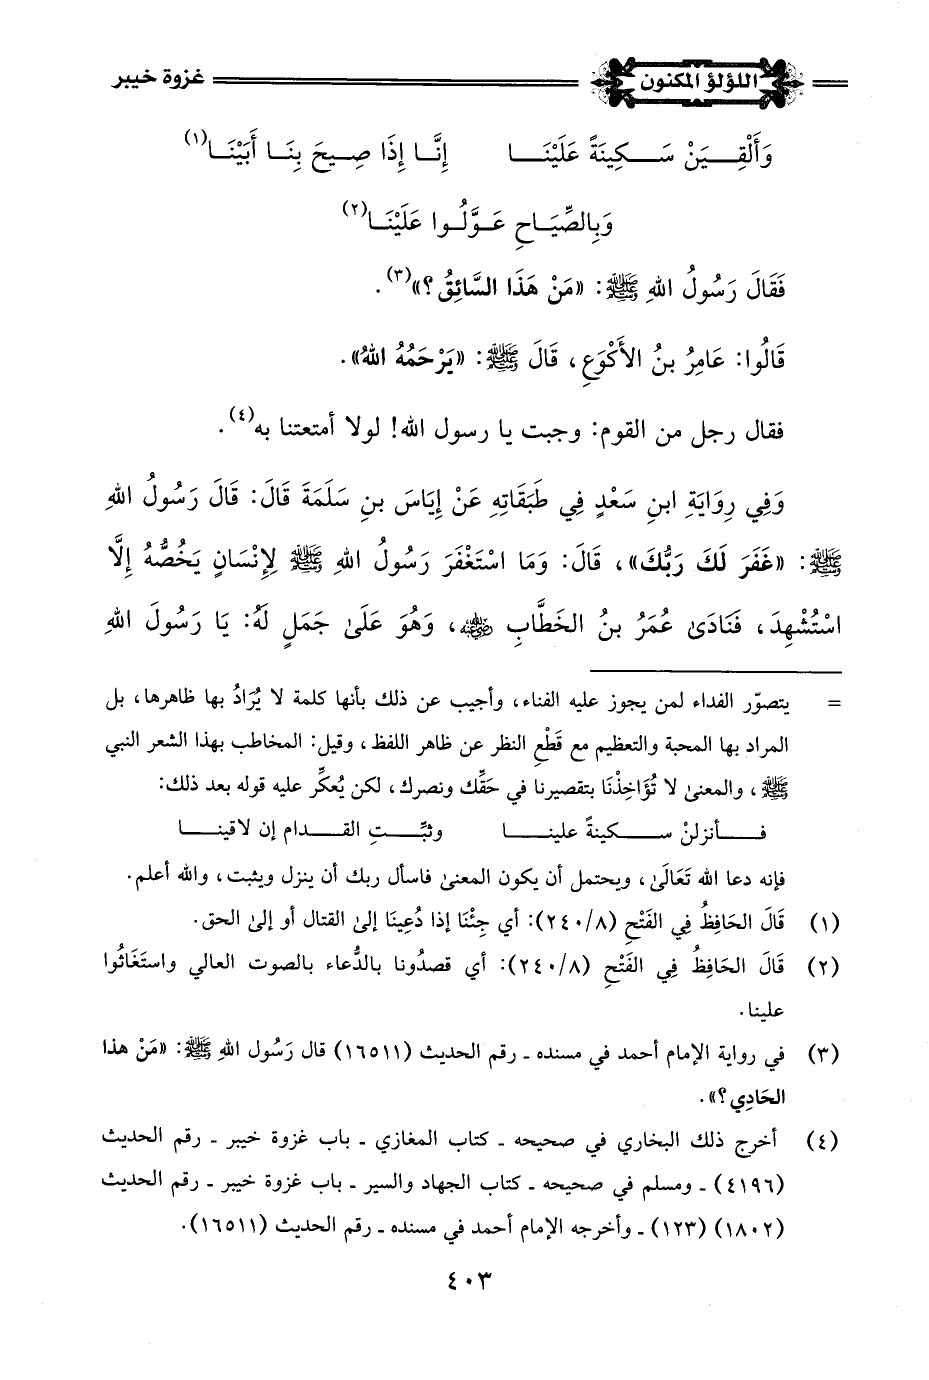 اللؤلؤ المكنون غزوة خيبر
وَأَلْقِـــيَنْ سَـــكِينَةً عَلَيْنَـــا إِنَّـــا إِذَا صِـيحَ بِنَـا أَبَيْنَـا(١)
وَبِالصِّيَـاحِ عَـوَّلُـوا عَلَيْنَـا(٢)
فَقَالَ رَسُولُ اللهِ ﷺ: «مَنْ هَذَا السَّائِقُ؟»(٣).
قَالُوا: عَامِرُ بنُ الأَكْوَعِ، قَالَ ﷺ: «يَرْحَمُهُ اللهُ».
فقال رجل من القوم: وجبت يا رسول الله! لولا أمتعتنا به(٤).
وَفِي رِوَايَةِ ابنِ سَعْدٍ فِي طَبَقَاتِهِ عَنْ إِيَاسَ بنِ سَلَمَةَ قَالَ: قَالَ رَسُولُ اللهِ
ﷺ: «غَفَرَ لَكَ رَبُّكَ»، قَالَ: وَمَا اسْتَغْفَرَ رَسُولُ اللهِ ﷺ لِإِنْسَانٍ يَخُصُّهُ إِلَّا
اسْتُشْهِدَ، فَنَادَىٰ عُمَرُ بنُ الخَطَّابِ رضي الله عنه، وَهُوَ عَلَىٰ جَمَلٍ لَهُ: يَا رَسُولَ اللهِ
= يتصوّر الفداء لمن يجوز عليه الفناء، وأجيب عن ذلك بأنها كلمة لا يُرَادُ بها ظاهرها، بل
المراد بها المحبة والتعظيم مع قَطْعِ النظر عن ظاهر اللفظ، وقيل: المخاطب بهذا الشعر النبي
ﷺ، والمعنىٰ لا تُؤَاخِذْنَا بتقصيرنا في حَقِّك ونصرك، لكن يُعكِّر عليه قوله بعد ذلك:
فـــأنزلنْ ســـكينةً علينـــا وثبِّـــتِ القـــدام إن لاقينـــا
فإنه دعا الله تَعَالَىٰ، ويحتمل أن يكون المعنىٰ فاسأل ربك أن ينزل ويثبت، والله أعلم.
(١) قَالَ الحَافِظُ فِي الفَتْحِ (٨/٢٤٠): أي جِئْنَا إذا دُعِينَا إلىٰ القتال أو إلىٰ الحق.
(٢) قَالَ الحَافِظُ فِي الفَتْحِ (٨/٢٤٠): أي قصدُونا بالدُّعاء بالصوت العالي واستَغَاثُوا
علينا.
(٣) في رواية الإمام أحمد في مسنده ـ رقم الحديث (١٦٥١١) قال رَسُول اللهِ ﷺ: «مَنْ هذا
الحَادِي؟».
(٤) أخرج ذلك البخاري في صحيحه ـ كتاب المغازي ـ باب غزوة خيبر ـ رقم الحديث
(٤١٩٦) ـ ومسلم في صحيحه ـ كتاب الجهاد والسير ـ باب غزوة خيبر ـ رقم الحديث
(١٨٠٢) (١٢٣) ـ وأخرجه الإمام أحمد في مسنده ـ رقم الحديث (١٦٥١١).
٤٠٣